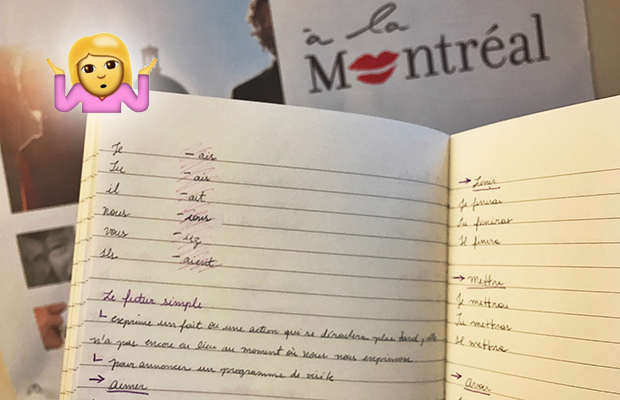 à la
Montréal
Je - ais
Tu - ais
il - ait
nous - ions
vous - iez
ils - aient
Le futur simple
↳ exprime un fait ou une action qui se déroulera plus tard, elle
n'a pas encore eu lieu au moment où nous nous exprimons
↳ pour annoncer un programme de visite
→ Aimer
→ Finir
Je finirai
Tu finiras
Il finira
→ Mettre
Je mettrai
Tu mettras
Il mettra
→ Avoir